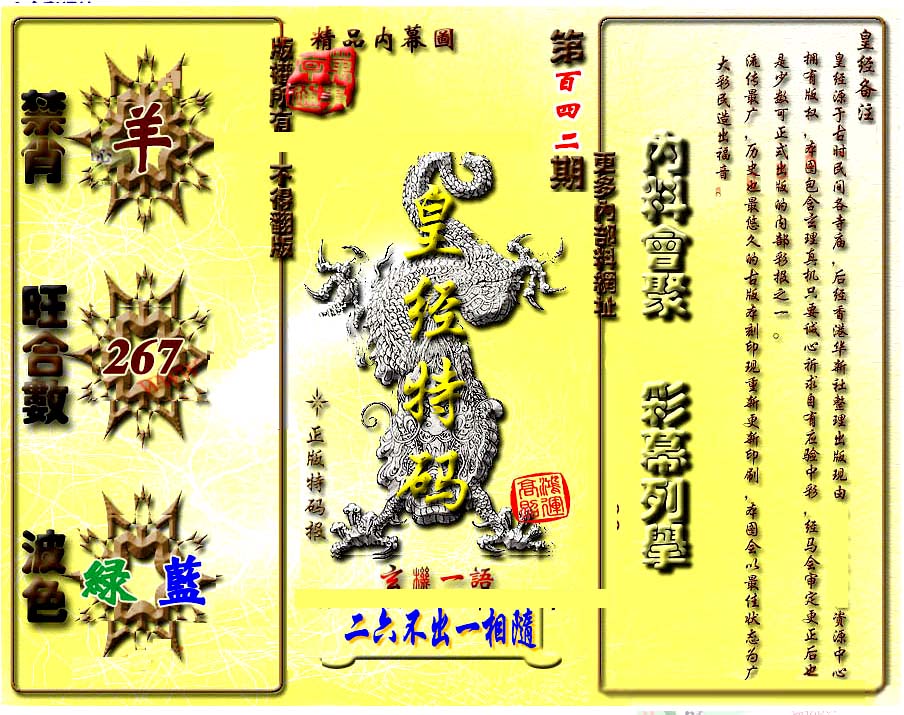 精品内幕圖
第百四二期
版權所有
不得翻版
更多內部料網址
禁肖
羊
旺合數
267
波色
綠 藍
皇经特码
正版特码报
鴻運高照
玄機一語
二六不出一相隨
内料會聚
彩幕列舉
皇经备注
皇经源于古时民间各寺庙，后经香港华新社整理出版现由
资源中心
拥有版权，本图包含玄理真机只要诚心祈求自有应验中彩，经马会审定更正后也
是少数可正式出版的内部彩报之一。
流传最广，历史也最悠久的古版本刻印现重新更新印刷，本图会以最佳状态为广
大彩民造出福音